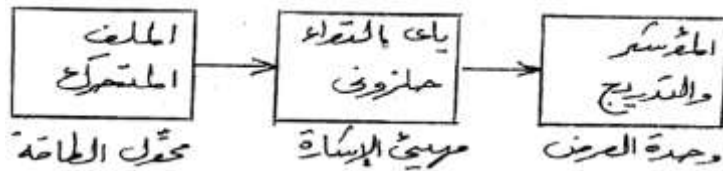 الملف
المتحرك
ياى بالتواء
حلزونى
المؤشر
والتدريج
محول الطاقة
مهيئ الإشارة
وحدة العرض